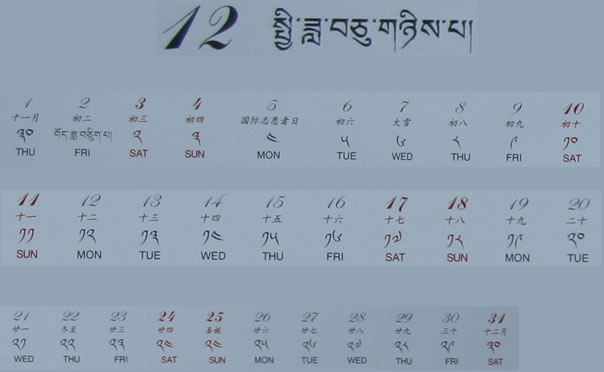 12 སྤྱི་ཟླ་བཅུ་གཉིས་པ།
1 2 3 4 5 6 7 8 9 10
十一月 初二 初三 初四 国际志愿者日 初六 大雪 初八 初九 初十
༣༠ བོད་ཟླ་བཅིུག་པ། ༢ ༣ ༤ ༥ ༦ ༨ ༩ ༡༠
THU FRI SAT SUN MON TUE WED THU FRI SAT
11 12 13 14 15 16 17 18 19 20
十一 十二 十三 十四 十五 十六 十七 十八 十九 二十
༡༡ ༡༢ ༡༣ ༡༤ ༡༥ ༡༦ ༡༧ ༡༨ ༡༩ ༢༠
SUN MON TUE WED THU FRI SAT SUN MON TUE
21 22 23 24 25 26 27 28 29 30 31
廿一 冬至 廿三 廿四 圣诞 廿六 廿七 廿八 廿九 三十 十二月
༢༡ ༢༢ ༢༣ ༢༤ ༢༤ ༢༥ ༢༦ ༢༧ ༢༨ ༢༩ ༣༠
WED THU FRI SAT SUN MON TUE WED THU FRI SAT